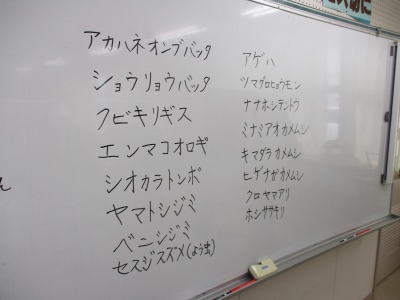 アカハネオンブバッタ
ショウリョウバッタ
クビキリギス
エンマコオロギ
シオカラトンボ
ヤマトシジミ
ベニシジミ
セスジスズメ(よう虫)
アゲハ
ツマグロヒョウモン
ナナホシテントウ
ミナミアオカメムシ
キマダラカメムシ
ヒゲナガカメムシ
クロヤマアリ
ホシササキリ